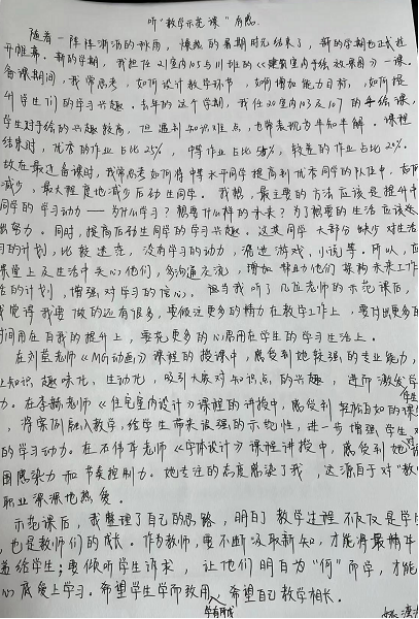 听"教学示范课"有感
随着一阵阵淅沥的秋雨，燥热的暑期时光结束了，新的学期也正式拉
开帷幕。新的学期，我担任21室内105与11班的《建筑室内手绘效果图》一课。
备课期间，我常思考，如何设计教学环节，如何增加能力目标，如何提
升学生们的学习兴趣。去年的这个学期，我任20室内103及107的手绘课
学生对手绘的兴趣较高，但遇到知识难点，也常表现为半知半解。课程
结束时，优秀的作业占比25%，中等作业占比 ，较差的作业占比20%。
故在最近备课时，我常思考如何将中水平同学提高到优秀同学的队伍中，
减少，最大程度地减少后劲生同学。我想，最主要的方法应该是提升中
同学的学习动力——为什么学习？想要什么样的未来？为了想要的生活应该
出努力。同时，提高后劲生同学的学习兴趣。这类同学大部分缺少对生活
的计划，比较迷茫，没有学习的动力，沉迷游戏，小说等。所以，
课堂上及生活中关心他们，多沟通交流，增加 帮助他们 未来工作
的计划，增强对学习的信心。但当我听了几位老师的示范课后，
我觉得我要做的还有很多，要做这更多的精力在教学工作上，要付出更多
时间用在自我的提升上，要花更多的心思用在学生的学习生活上。
在刘莹老师《MG动画》课程的授课中，感受到她较强的专业能力，
知识，趣味化，生动化，吸引大家对知识点的兴趣，进而激发学生
力。在李 老师《住宅室内设计》课程的讲授中，感受到轻松自如的课
，将案例融入教学，给学生带来很强的示范性，进一步增强学生对
的学习动力。在石伟军老师《字体设计》课程讲授中，感受到她
围感染力和节奏控制力。她专注的态度感染了我，这源自于对"教
职业深深地热爱。
示范课后，我整理了自己的思路，明白了教学过程不仅仅是学
，也是教师们的成长。作为教师，要不断汲取新知，才能将最精华
递给学生；要倾听学生诉求，让他们明白为"何"而学，才能
心底爱上学习。希望学生学而致用、学有所成，希望自己教学相长。